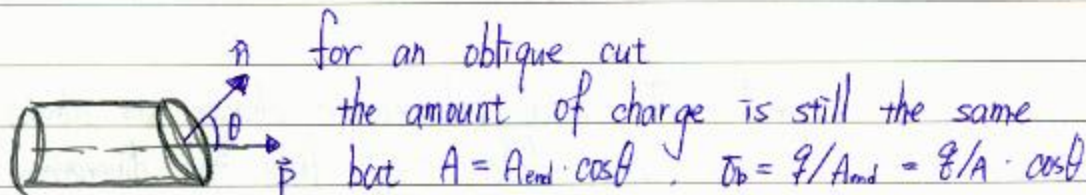 n̂ for an oblique cut
θ the amount of charge is still the same
p⃗ but A = A_end · cosθ . σ_b = q/A_end = q/A · cosθ